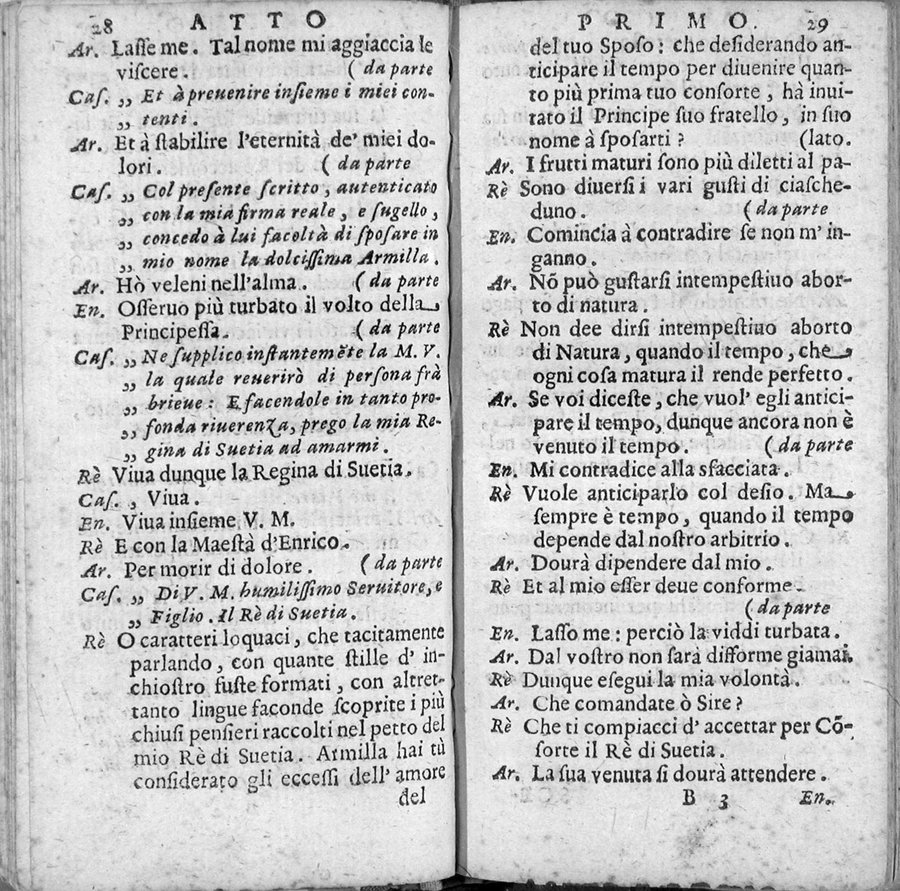 28 ATTO
Ar. Lasse me. Tal nome mi aggiaccia le
viscere. (da parte
Cas. ,, Et à preuenire insieme i miei con-
,, tenti.
Ar. Et à stabilire l'eternità de' miei do-
lori. (da parte
Cas. ,, Col presente scritto, autenticato
,, con la mia firma reale, e sugello,
,, concedo à lui facoltà di sposare in
,, mio nome la dolcissima Armilla.
Ar. Hò veleni nell'alma. (da parte
En. Osseruo più turbato il volto della
Principessa. (da parte
Cas. ,, Ne supplico instantemẽte la M. V.
,, la quale reuerirò di persona frà
,, brieue: E facendole in tanto pro-
,, fonda riuerenza, prego la mia Re-
,, gina di Suetia ad amarmi.
Rè Viua dunque la Regina di Suetia.
Cas. , Viua.
En. Viua insieme V. M.
Rè E con la Maestà d'Enrico.
Ar. Per morir di dolore. (da parte
Cas. ,, Di V. M. humilissimo Seruitore, e
,, Figlio. Il Rè di Suetia.
Rè O caratteri loquaci, che tacitamente
parlando, con quante stille d' in-
chiostro fuste formati, con altret-
tanto lingue faconde scoprite i più
chiusi pensieri raccolti nel petto del
mio Rè di Suetia. Armilla hai tù
considerato gli eccessi dell' amore
del
PRIMO. 29
del tuo Sposo: che desiderando an-
ticipare il tempo per diuenire quan-
to più prima tuo consorte, hà inui-
tato il Principe suo fratello, in suo
nome à sposarti? (lato.
Ar. I frutti maturi sono più diletti al pa-
Rè Sono diuersi i vari gusti di ciasche-
duno. (da parte
En. Comincia à contradire se non m' in-
ganno.
Ar. Nõ può gustarsi intempestiuo abor-
to di natura.
Rè Non dee dirsi intempestiuo aborto
di Natura, quando il tempo, che
ogni cosa matura il rende perfetto.
Ar. Se voi diceste, che vuol' egli antici-
pare il tempo, dunque ancora non è
venuto il tempo. (da parte
En. Mi contradice alla sfacciata.
Rè Vuole anticiparlo col desio. Ma
sempre è tempo, quando il tempo
depende dal nostro arbitrio.
Ar. Dourà dipendere dal mio.
Rè Et al mio esser deue conforme.
(da parte
En. Lasso me: perciò la viddi turbata.
Ar. Dal vostro non sarà difforme giamai.
Rè Dunque esegui la mia volontà.
Ar. Che comandate ò Sire?
Rè Che ti compiacci d' accettar per Cõ-
sorte il Rè di Suetia.
Ar. La sua venuta si dourà attendere.
B 3 En.